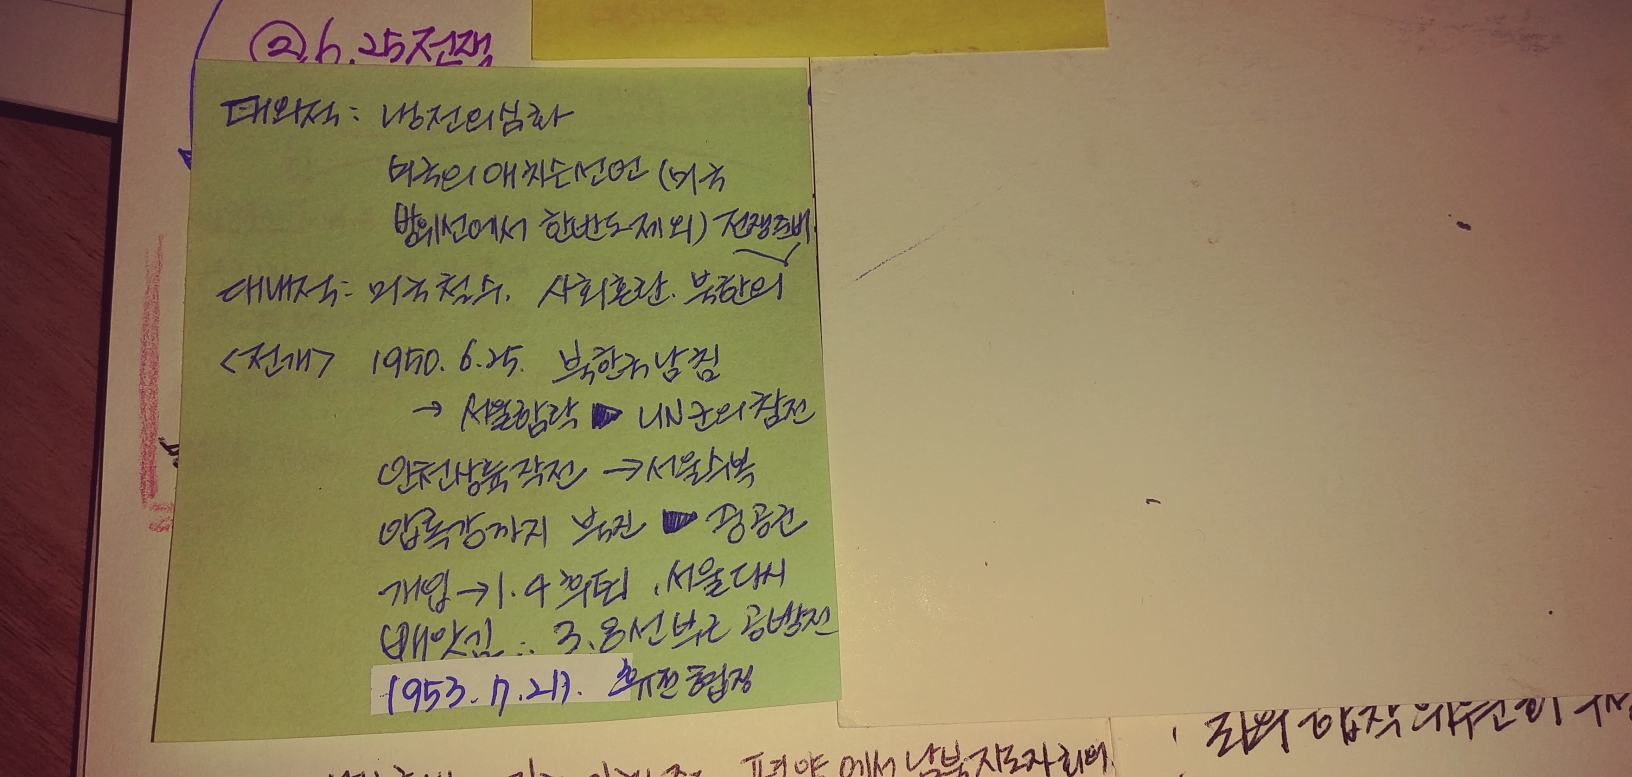 ② 6.25전쟁
대외적: 냉전의심화
미국의 애치슨선언 (미국
방위선에서 한반도제외) 전쟁준비
대내적: 미국철수. 사회혼란. 북한의
<전개> 1950. 6.25. 북한국남침
→ 서울함락 ▶ UN군의참전
인천상륙작전 →서울수복
압록강까지 북진 ▶ 중공군
개입→1.4후퇴, 서울다시
빼앗김 : 3.8선부근 공방전
1953.7.27. 휴전협정
평양에서남북지도자회의.